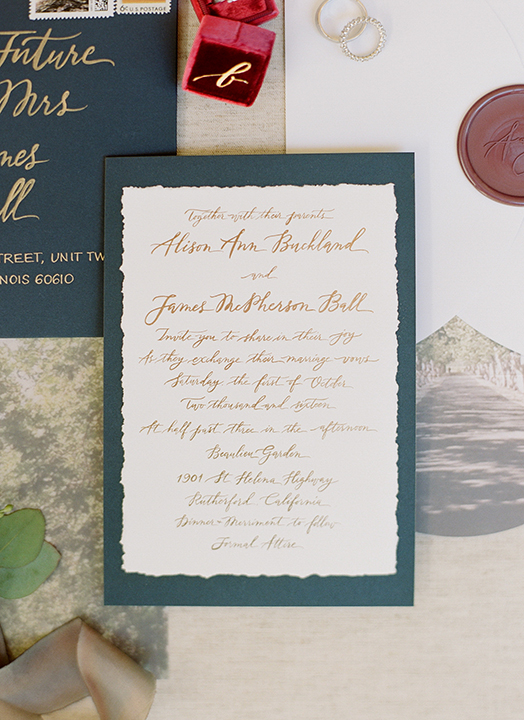 Future
Mrs
mes
ll
STREET, UNIT TW
NOIS 60610
b
Together with their parents
Alison Ann Buckland
and
James McPherson Ball
Invite you to share in their joy
As they exchange their marriage vows
Saturday the first of October
Two thousand and sixteen
At half past three in the afternoon
Beaulieu Garden
1901 St Helena Highway
Rutherford California
Dinner + Merriment to follow
Formal Attire